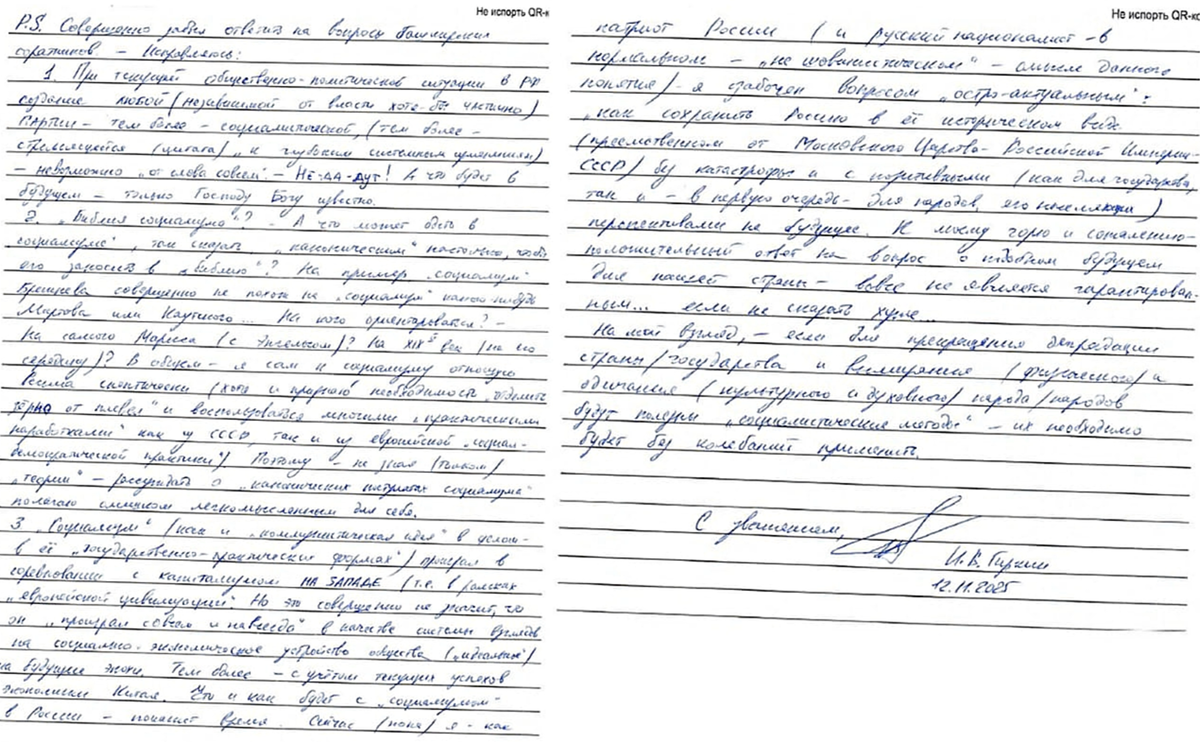 Не испорть QR-к
P.S. Совершенно забыл ответить на вопросы башкирских
соратников – Исправляюсь:
1. При текущей общественно-политической ситуации в РФ
создание любой (независимой от власти хотя-бы частично)
ПАРТИИ – тем более – социалистической, (тем более –
стремящейся (цитата) „к глубоким системным изменениям)
– невозможно „от слова совсем". – НЕ-ДА-ДУТ! А что будет в
будущем – только Господу Богу известно.
2. „Библия социализма"? – А что может быть в
„социализме", так сказать, „каноническим" настолько, чтобы
его заносить в „библию"? На пример „социализм"
Брежнева совершенно не похож на „социализм" какого-нибудь
Мартова или Каутского... На кого ориентироваться? –
На самого Маркса (с Энгельсом)? На XIX й век (на его
середину)? В общем – я сам к социализму отношусь
весьма скептически (хотя и признаю необходимость „отделить
зёрна от плевел" и воспользоваться многими „практическими
наработками" как из СССР, так и из европейской „социал-
демократической практики"). Поэтому – не зная (толком)
„теории" – рассуждать о „канонических патриотах социализма"
полагаю слишком легкомысленным для себя.
3. „Социализм" (как и „коммунистическая идея" в целом –
в её „государственно-практических формах") проиграл в
соревновании с капитализмом НА ЗАПАДЕ (т.е. в рамках
„европейской цивилизации". Но это совершенно не значит, что
он „проиграл совсем и навсегда" в качестве системы взглядов
на социально-экономическое устройство общества („идеальные")
на будущие эпохи. Тем более – с учётом текущих успехов
экономики Китая. Что и как будет с „социализмом"
в России – покажет время. Сейчас (пока) я – как
Не испорть QR-ко
патриот России (и Русский националист – в
нормальном – „не шовинистическом" – смысле данного
понятия) – я озабочен вопросом „остро-актуальным":
„как сохранить Россию в её историческом виде
(преемственном от Московского Царства – Российской Империи –
СССР) без катастрофы и с позитивными (как для государства,
так и – в первую очередь – для народов, его населяющих)
перспективами на будущее. К моему горю и сожалению –
положительный ответ на вопрос о подобном будущем
для нашей страны – вовсе не является гарантирован-
ным... если не сказать хуже...
На мой взгляд, – если для прекращения деградации
страны/государства и вымирания (физического) и
одичания (культурного и духовного) народа/народов
будут полезны „социалистические методы" – их необходимо
будет без колебаний применить.
С уважением,
И.В. Гиркин
12.11.2025